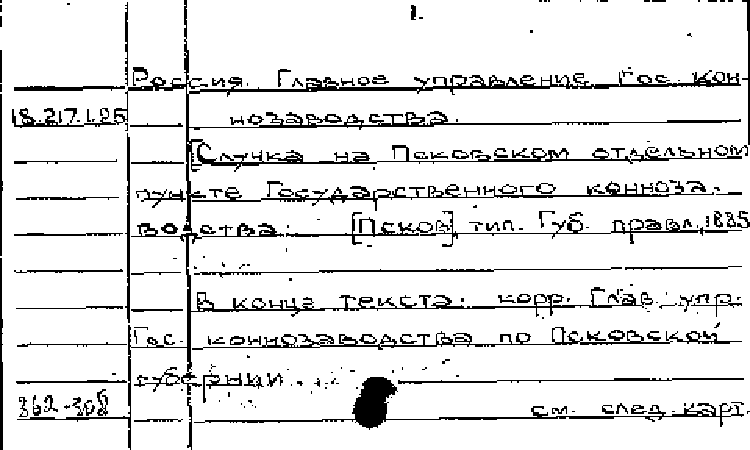 1.
Россия. Главное управление Гос. кон-
18.217.1.25 нозаводства.
[Случка на Псковском отдельном
пункте Государственного конноза-
водства. [Псков], тип. Губ. правл., 1885
В конце текста: корр. Глав. упр.
Гос. коннозаводства по Псковской
губернии.
см. след. карт.